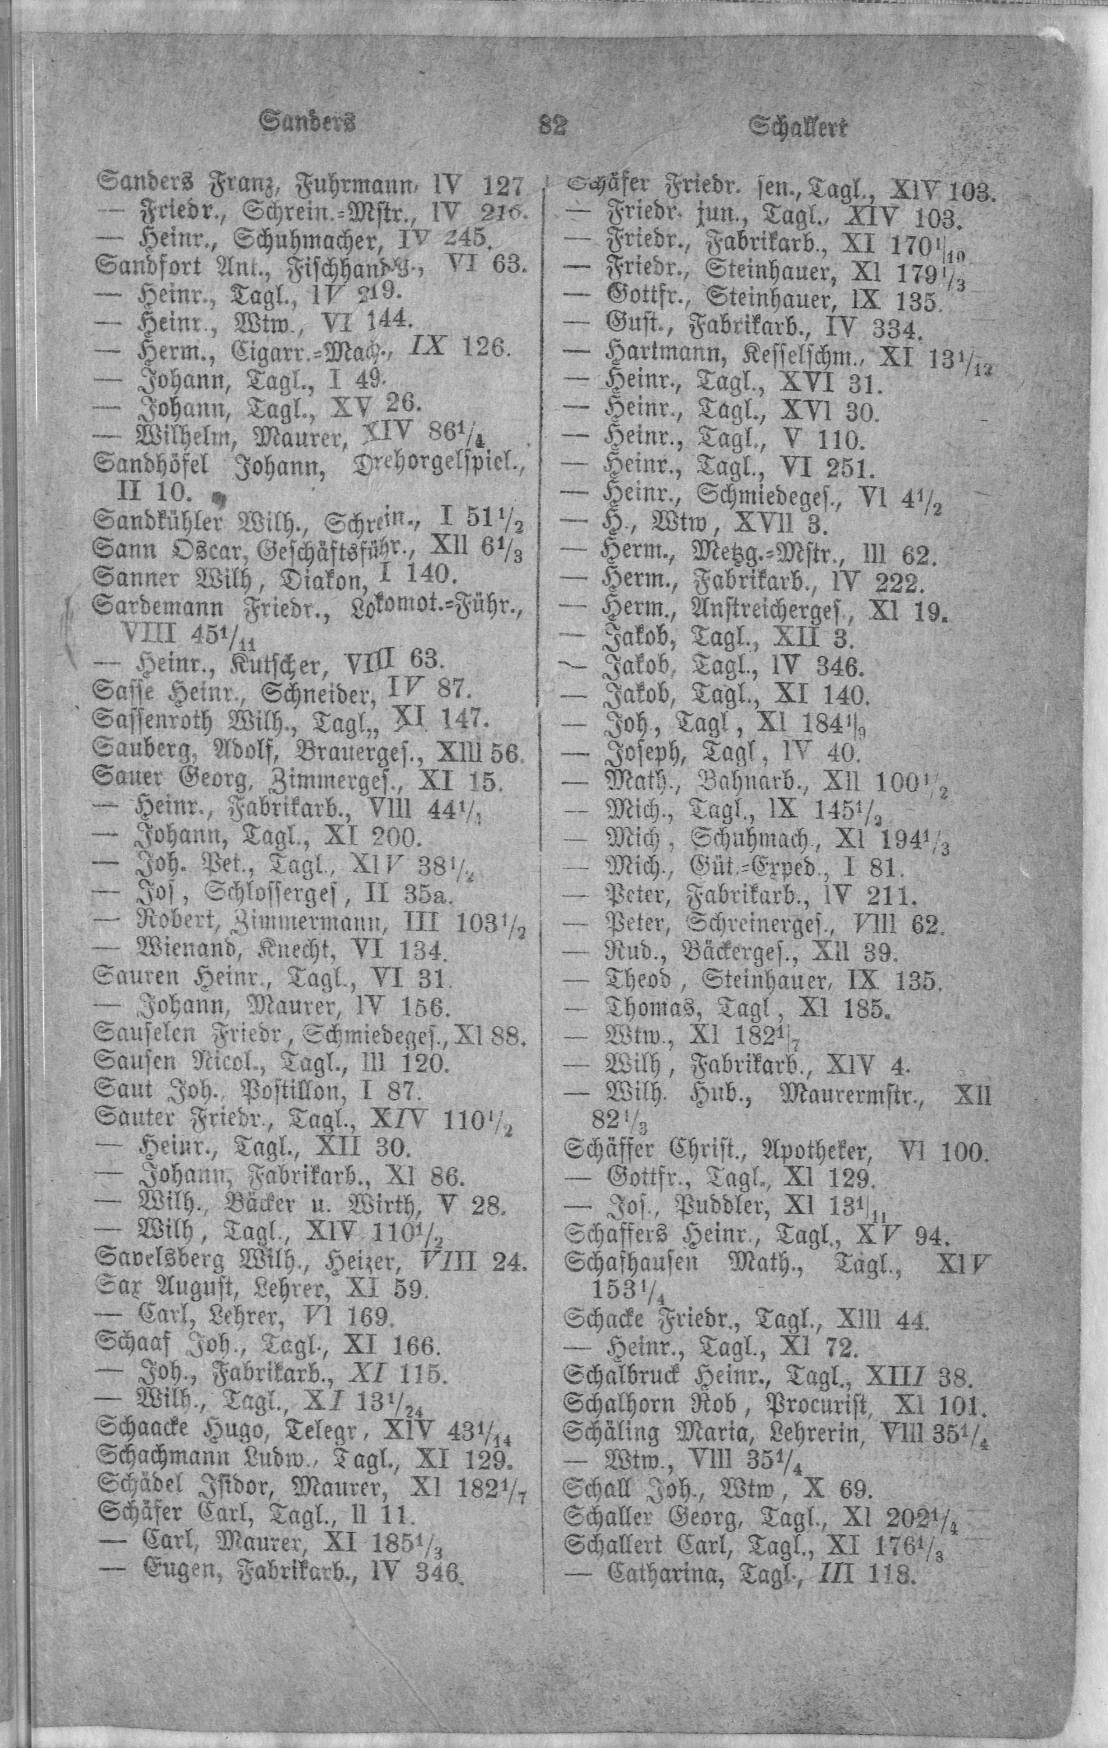 Sanders 82 Schallert
Sanders Franz, Fuhrmann, IV 127
— Friedr., Schrein.=Mstr., IV 216.
— Heinr., Schuhmacher, IV 245.
Sandfort Ant., Fischhandlg., VI 63.
— Heinr., Tagl., IV 219.
— Heinr., Wtw., VI 144.
— Herm., Cigarr.=Mach., IX 126.
— Johann, Tagl., I 49.
— Johann, Tagl., XV 26.
— Wilhelm, Maurer, XIV 86 1/4.
Sandhöfel Johann, Drehorgelspiel.,
II 10.
Sandkühler Wilh., Schrein., I 51 1/2
Sann Oscar, Geschäftsführ., XII 6 1/3
Sanner Wilh, Diakon, I 140.
Sardemann Friedr., Lokomot.=Führ.,
VIII 45 1/11
— Heinr., Kutscher, VIII 63.
Sasse Heinr., Schneider, IV 87.
Sassenroth Wilh., Tagl., XI 147.
Sauberg, Adolf, Brauerges., XIII 56.
Sauer Georg, Zimmerges., XI 15.
— Heinr., Fabrikarb., VIII 44 1/4
— Johann, Tagl., XI 200.
— Joh. Pet., Tagl., XIV 38 1/2
— Jos, Schlosserges, II 35a.
— Robert, Zimmermann, III 103 1/2
— Wienand, Knecht, VI 134.
Sauren Heinr., Tagl., VI 31.
— Johann, Maurer, IV 156.
Sauselen Friedr, Schmiedeges., XI 88.
Sausen Nicol., Tagl., III 120.
Saut Joh., Postillon, I 87.
Sauter Friedr., Tagl., XIV 110 1/2
— Heinr., Tagl., XII 30.
— Johann, Fabrikarb., XI 86.
— Wilh., Bäcker u. Wirth, V 28.
— Wilh, Tagl., XIV 110 1/2
Savelsberg Wilh., Heizer, VIII 24.
Sax August, Lehrer, XI 59.
— Carl, Lehrer, VI 169.
Schaaf Joh., Tagl., XI 166.
— Joh., Fabrikarb., XI 115.
— Wilh., Tagl., XI 13 1/24
Schaacke Hugo, Telegr, XIV 43 1/14
Schachmann Ludw., Tagl., XI 129.
Schädel Isidor, Maurer, XI 182 1/7
Schäfer Carl, Tagl., II 11.
— Carl, Maurer, XI 185 1/3
— Eugen, Fabrikarb., IV 346.
Schäfer Friedr. sen., Tagl., XIV 103.
— Friedr. jun., Tagl., XIV 103.
— Friedr., Fabrikarb., XI 170 1/10
— Friedr., Steinhauer, XI 179 1/3
— Gottfr., Steinhauer, IX 135.
— Gust., Fabrikarb., IV 334.
— Hartmann, Kesselschm., XI 13 1/12
— Heinr., Tagl., XVI 31.
— Heinr., Tagl., XVI 30.
— Heinr., Tagl., V 110.
— Heinr., Tagl., VI 251.
— Heinr., Schmiedeges., VI 4 1/2
— H., Wtw, XVII 3.
— Herm., Metzg.=Mstr., III 62.
— Herm., Fabrikarb., IV 222.
— Herm., Anstreicherges, XI 19.
— Jakob, Tagl., XII 3.
— Jakob, Tagl., IV 346.
— Jakob, Tagl., XI 140.
— Joh, Tagl, XI 184 1/9
— Joseph, Tagl, IV 40.
— Math., Bahnarb., XII 100 1/2
— Mich., Tagl., IX 145 1/2
— Mich, Schuhmach., XI 194 1/3
— Mich., Güt.=Exped., I 81.
— Peter, Fabrikarb., IV 211.
— Peter, Schreinerges., VIII 62.
— Rud., Bäckerges., XII 39.
— Theod, Steinhauer, IX 135.
— Thomas, Tagl, XI 185.
— Wtw., XI 182 1/7
— Wilh, Fabrikarb., XIV 4.
— Wilh. Hub., Maurermstr., XII
82 1/3
Schäffer Christ., Apotheker, VI 100.
— Gottfr., Tagl., XI 129.
— Jos., Puddler, XI 13 1/11
Schaffers Heinr., Tagl., XV 94.
Schafhausen Math., Tagl., XIV
153 1/4
Schacke Friedr., Tagl., XIII 44.
— Heinr., Tagl., XI 72.
Schalbruck Heinr., Tagl., XIII 38.
Schalhorn Rob, Procurist, XI 101.
Schäling Maria, Lehrerin, VIII 35 1/4
— Wtw., VIII 35 1/4
Schall Joh., Wtw, X 69.
Schaller Georg, Tagl., XI 202 1/4
Schallert Carl, Tagl., XI 176 1/3
— Catharina, Tagl., III 118.